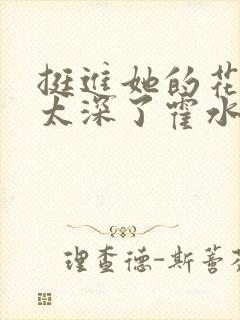 挺进她的花
太深了霍水
理查德-斯蒈芬